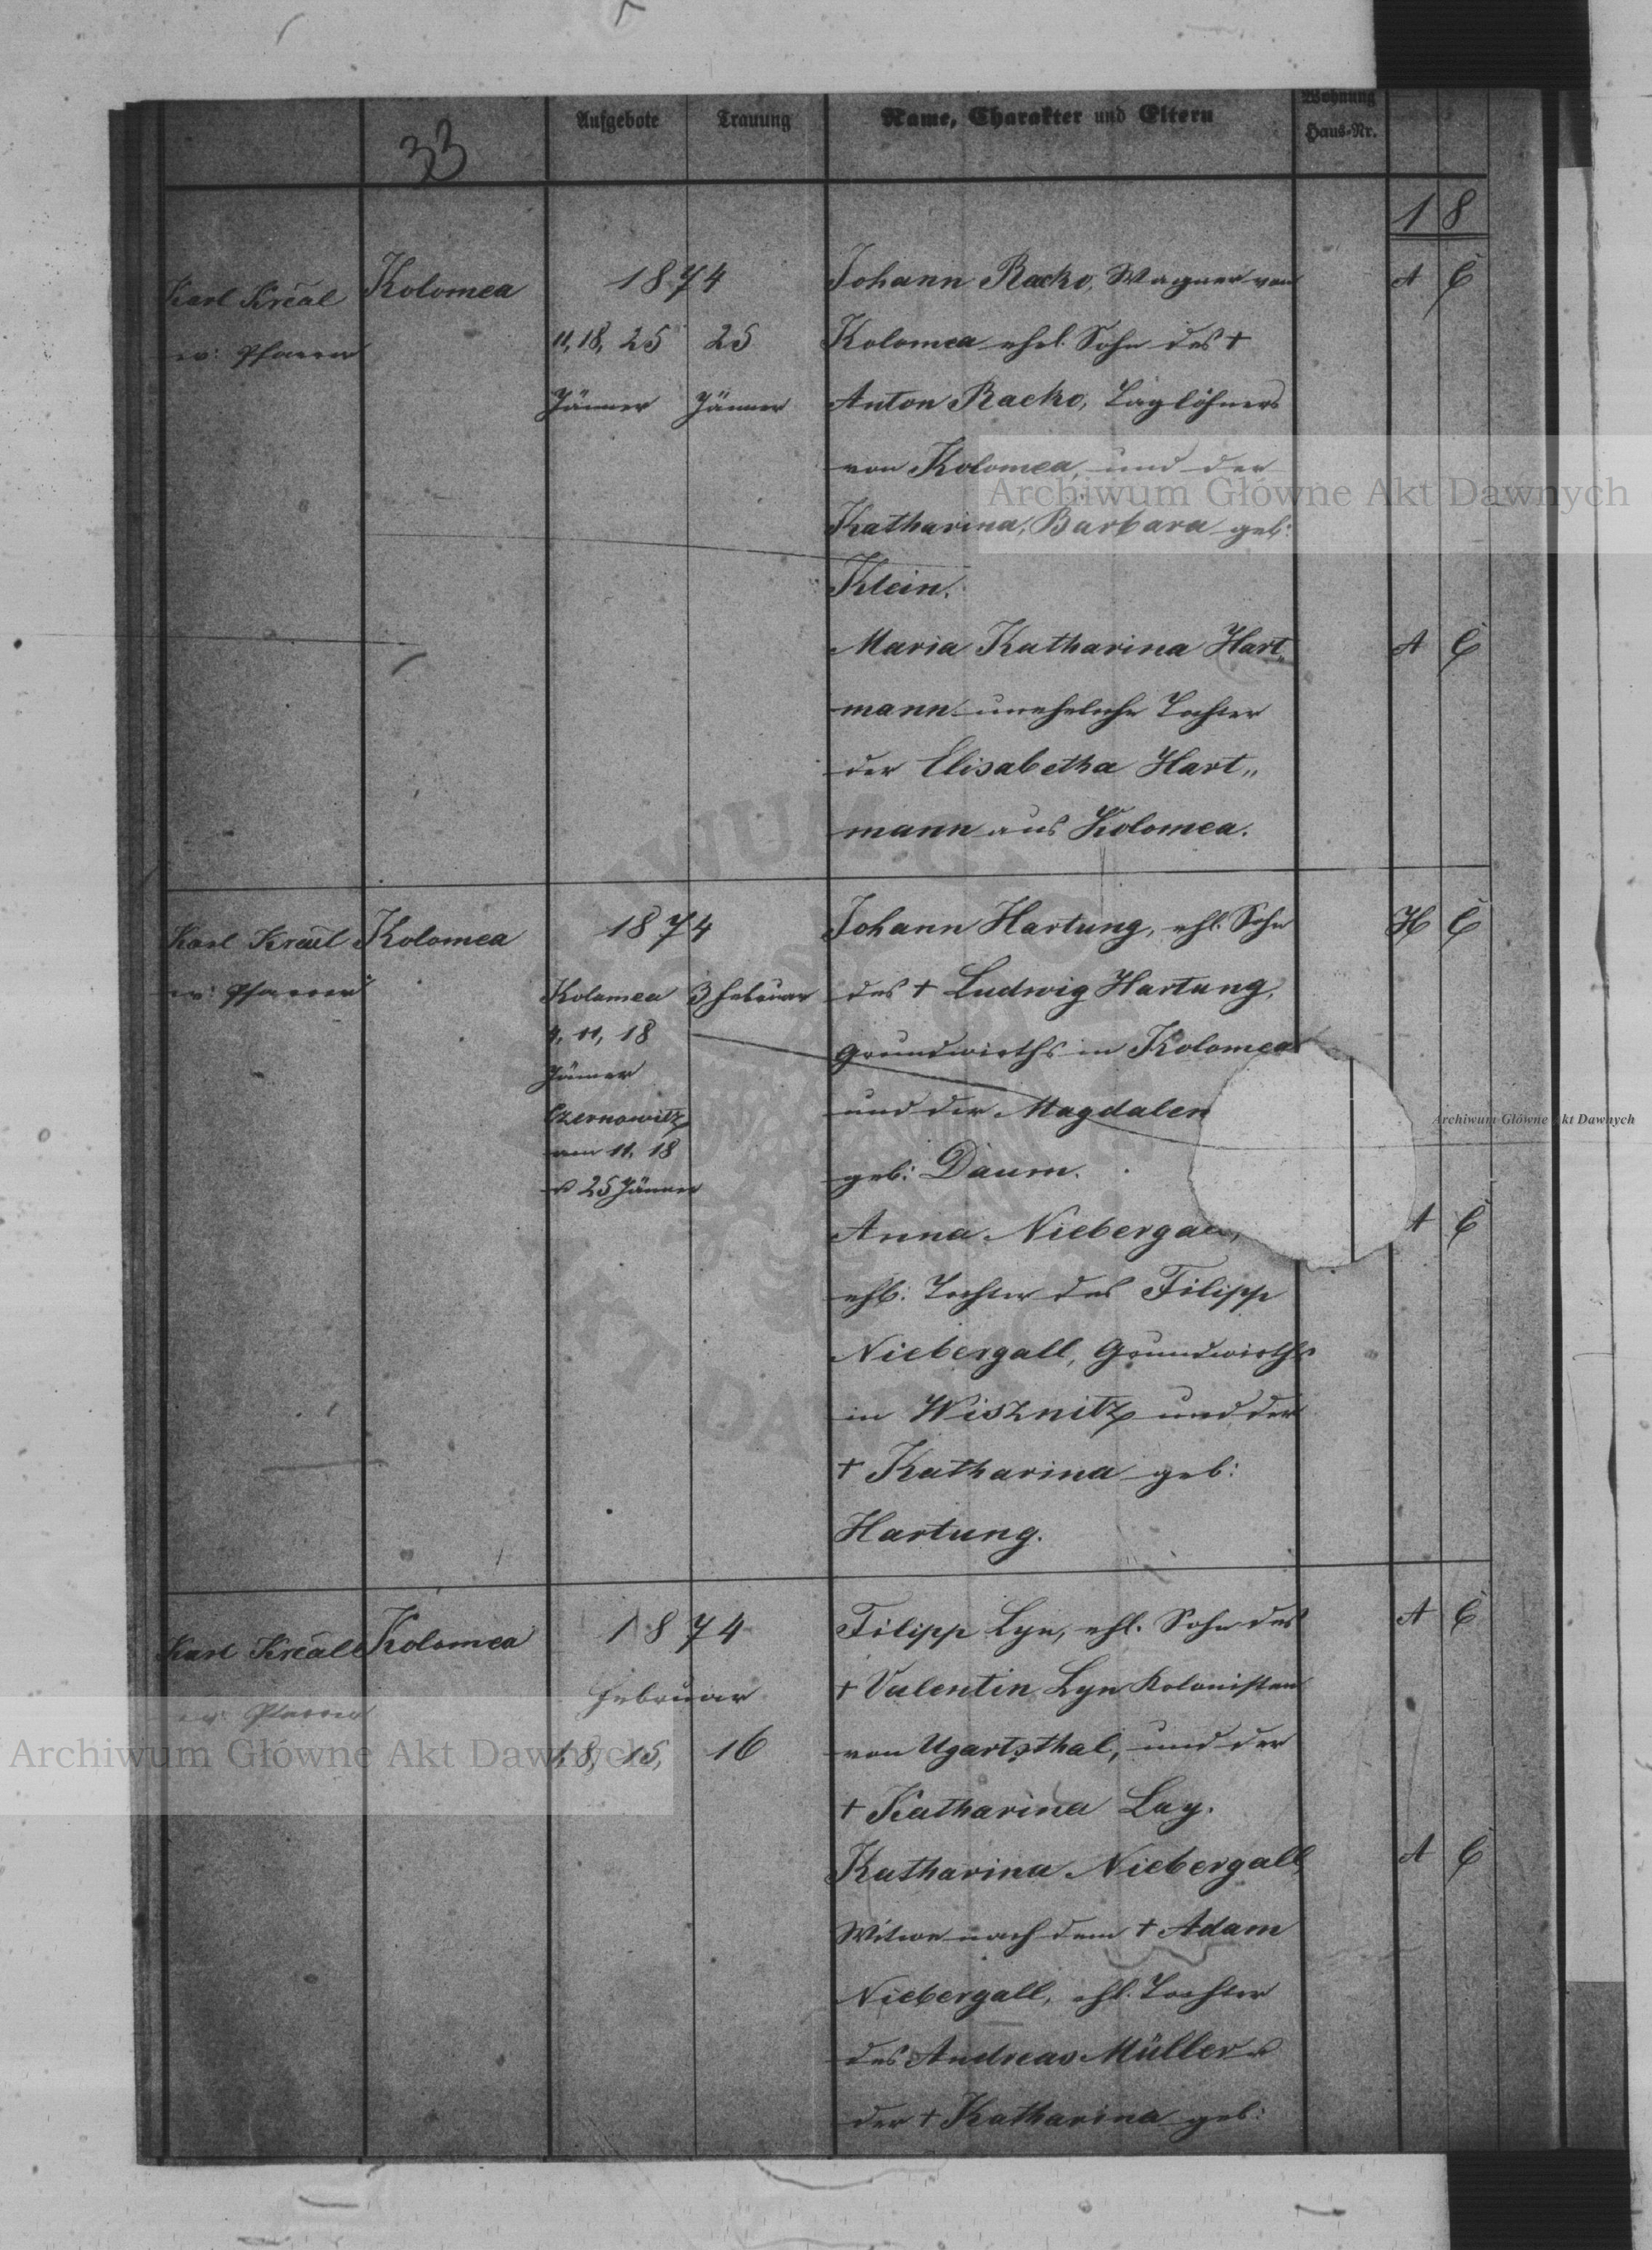 33
Aufgebote Trauung Name, Charakter und Eltern Wohnung
Haus-Nr.
18
Karl Král Kolomea 1874 Johann Racko, Wagner von A C
ev: Pfarrer 11, 18, 25 25 Kolomea ehel. Sohn des †
Jänner Jänner Anton Racko, Taglöhners
von Kolomea, und der
Archiwum Główne Akt Dawnych
Katharina, Barbara geb:
Klein.
Maria Katharina Hart„ A C
mann uneheliche Tochter
der Elisabetha Hart„
mann aus Kolomea.
Karl Král Kolomea 1874 Johann Hartung, ehl. Sohn H C
ev: Pfarrer Kolomea 3 Februar des † Ludwig Hartung,
4, 11, 18 Grundwirths in Kolomea
Jänner
Czernowitz und der Magdalen
Archiwum Główne Akt Dawnych
am 11, 18 geb: Daum.
u 25 Jänner
Anna Niebergall, A C
ehl: Tochter des Filipp
Niebergall, Grundwirths
in Wisznitz und der
† Katharina geb:
Hartung.
Karl Král Kolomea 1874 Filipp Lyn, ehl. Sohn des A C
ev: Pfarrer Februar † Valentin Lyn Kolonisten
Archiwum Główne Akt Dawnych
1, 8, 15, 16 von Ugartsthal, und der
† Katharina Lay.
Katharina Niebergall, A C
Witwe nach dem † Adam
Niebergall, ehl. Tochter
des Andreas Müller u
der † Katharina geb: